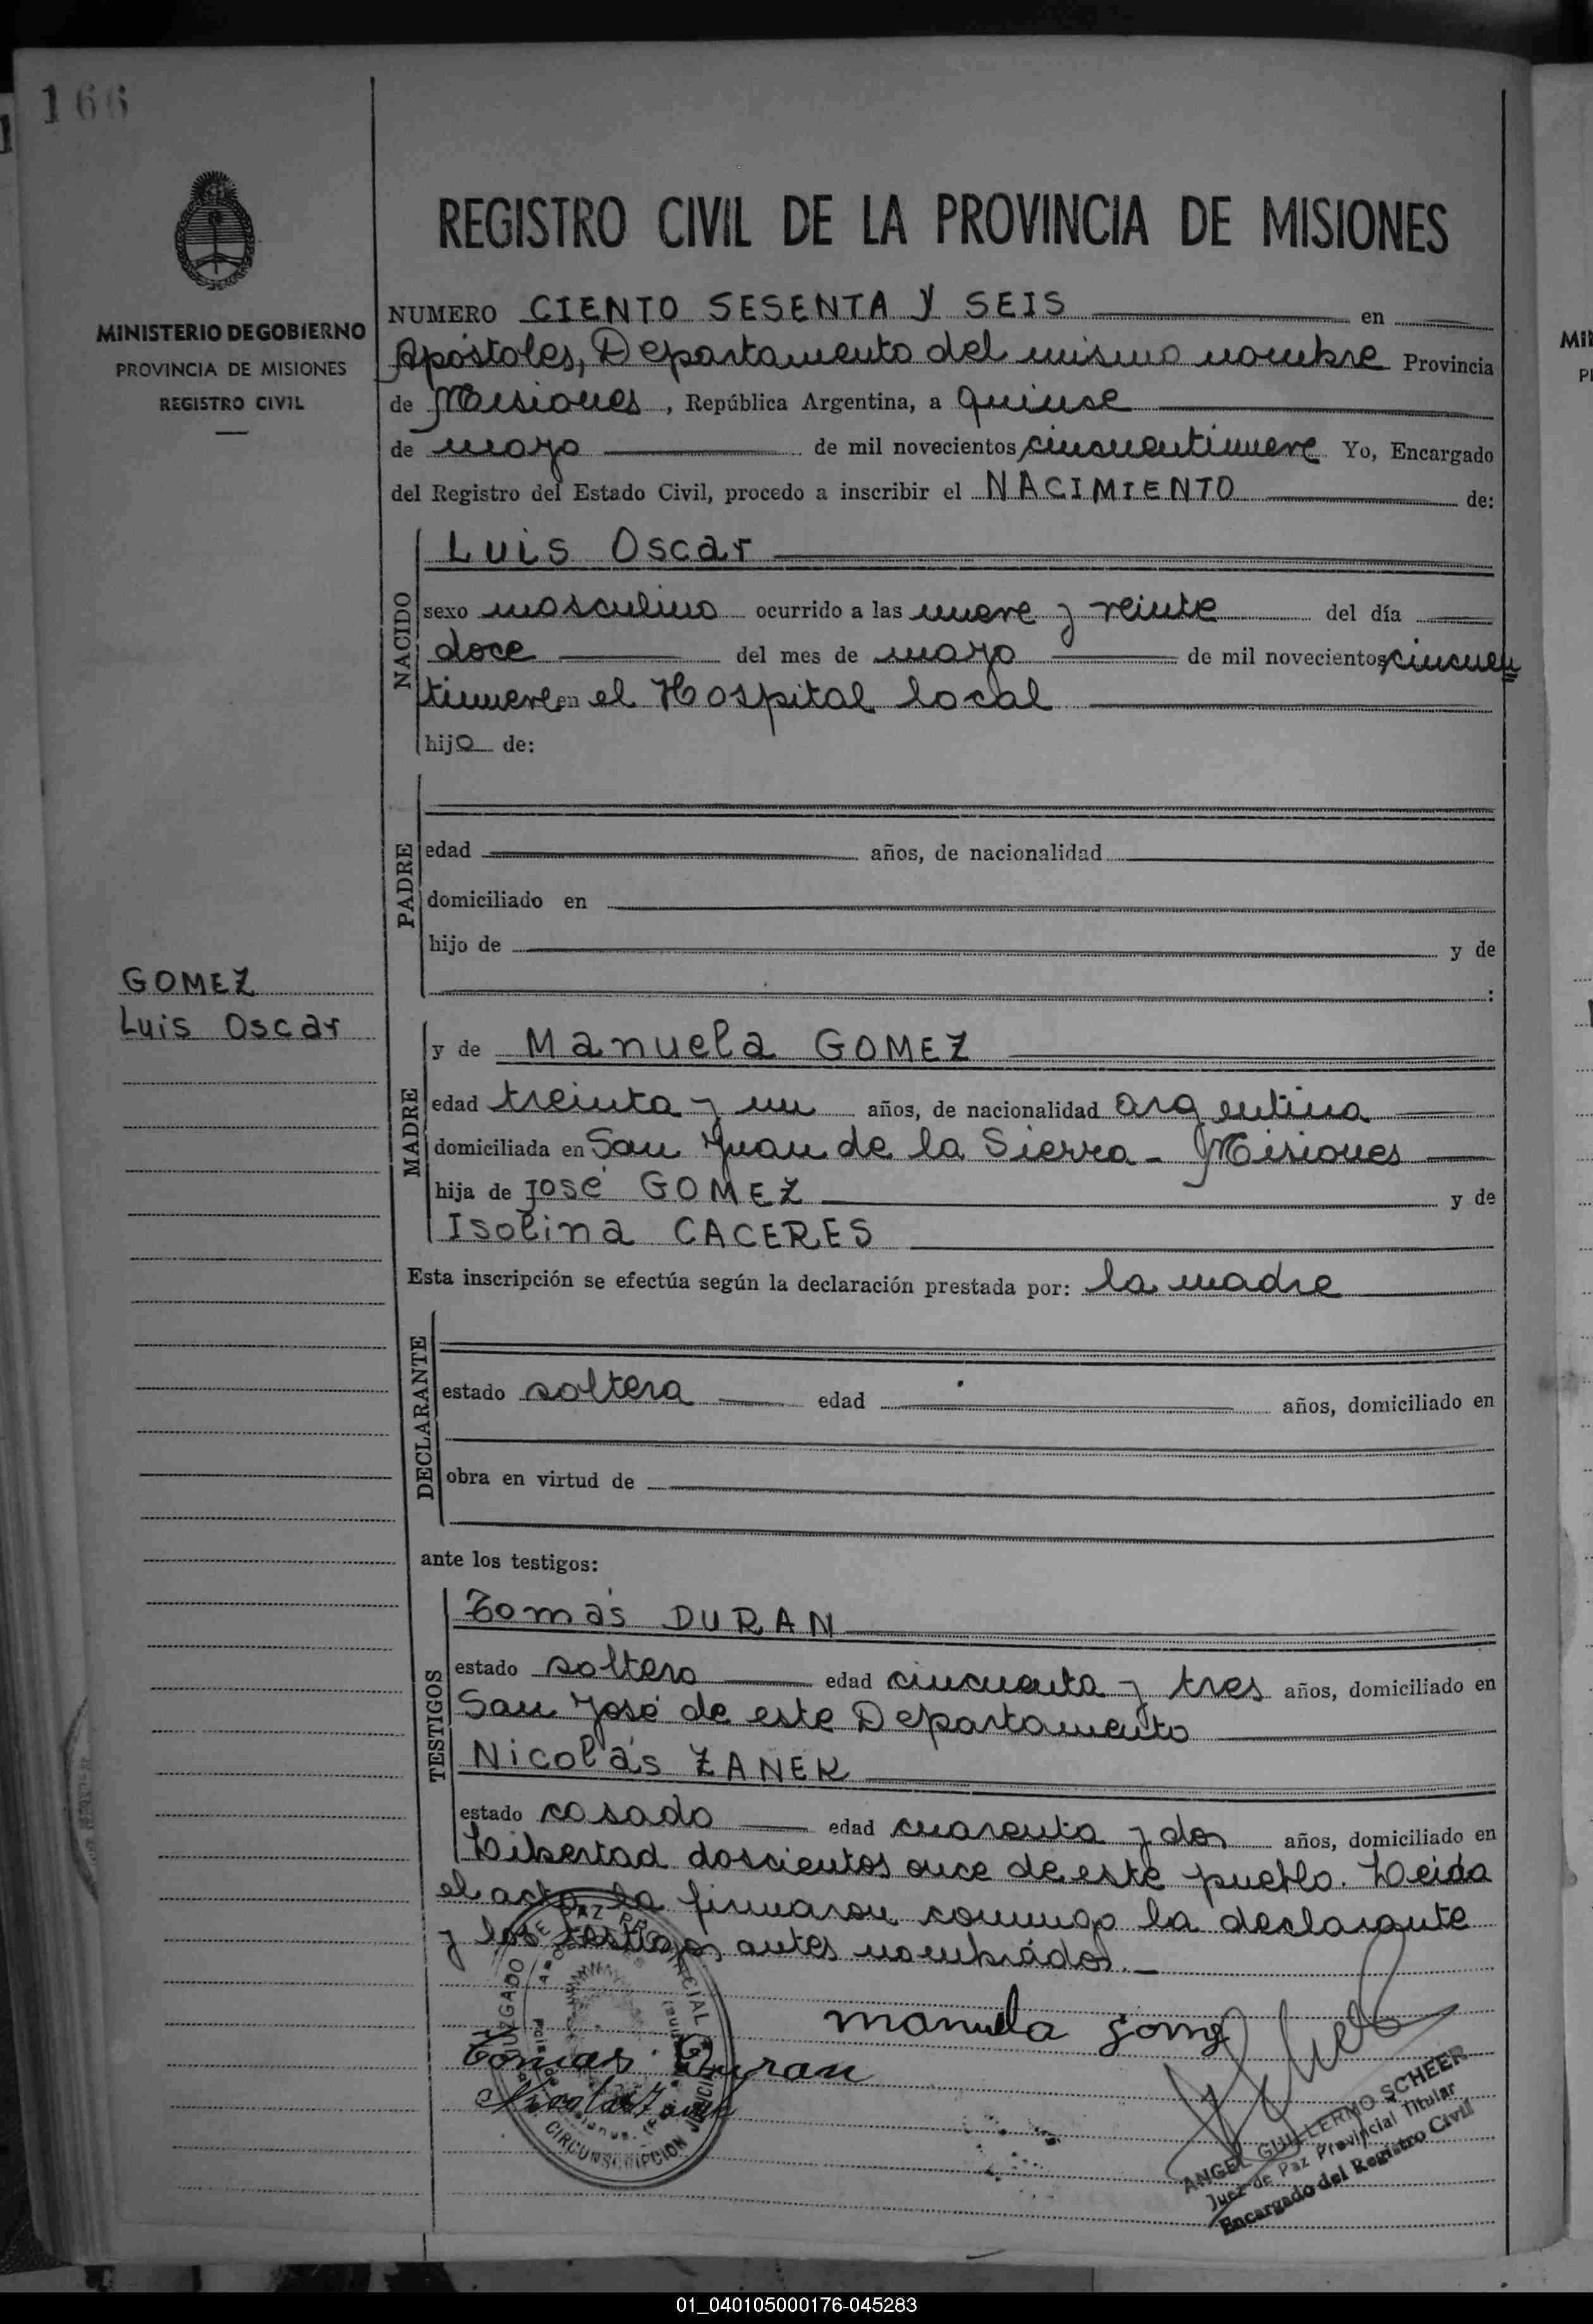 166
MINISTERIO DE GOBIERNO
PROVINCIA DE MISIONES
REGISTRO CIVIL
REGISTRO CIVIL DE LA PROVINCIA DE MISIONES
NUMERO CIENTO SESENTA Y SEIS en
Apóstoles, Departamento del mismo nombre Provincia
de Misiones, República Argentina, a quinse
de mayo de mil novecientos cincuentinueve Yo, Encargado
del Registro del Estado Civil, procedo a inscribir el NACIMIENTO de:
NACIDO
Luis Oscar
sexo masculino ocurrido a las nueve y veinte del día
doce del mes de mayo de mil novecientos cincuen
tinueve en el Hospital local
hijo de:
PADRE
edad años, de nacionalidad
domiciliado en
hijo de y de
:
GOMEZ
Luis Oscar
MADRE
y de Manuela GOMEZ
edad treinta y un años, de nacionalidad argentina
domiciliada en San Juan de la Sierra - Misiones
hija de José GOMEZ y de
Isolina CACERES
Esta inscripción se efectúa según la declaración prestada por: la madre
DECLARANTE
estado soltera edad años, domiciliado en
obra en virtud de
ante los testigos:
TESTIGOS
Tomás DURAN
estado soltero edad cincuenta y tres años, domiciliado en
San José de este Departamento
Nicolás ZANEK
estado casado edad cuarenta y dos años, domiciliado en
Libertad doscientos once de este pueblo. Leida
el acta la firmaron conmigo la declarante
y los testigos antes nombrádos.
JUZGADO DE PAZ PROVINCIAL
CIRCUNSCRIPCION JUDICIAL
manuela gomez
Tomas Duran
Nicolas Zanek
ANGEL GUILLERMO SCHEER
Juez de Paz Provincial Titular
Encargado del Registro Civil
01_040105000176-045283